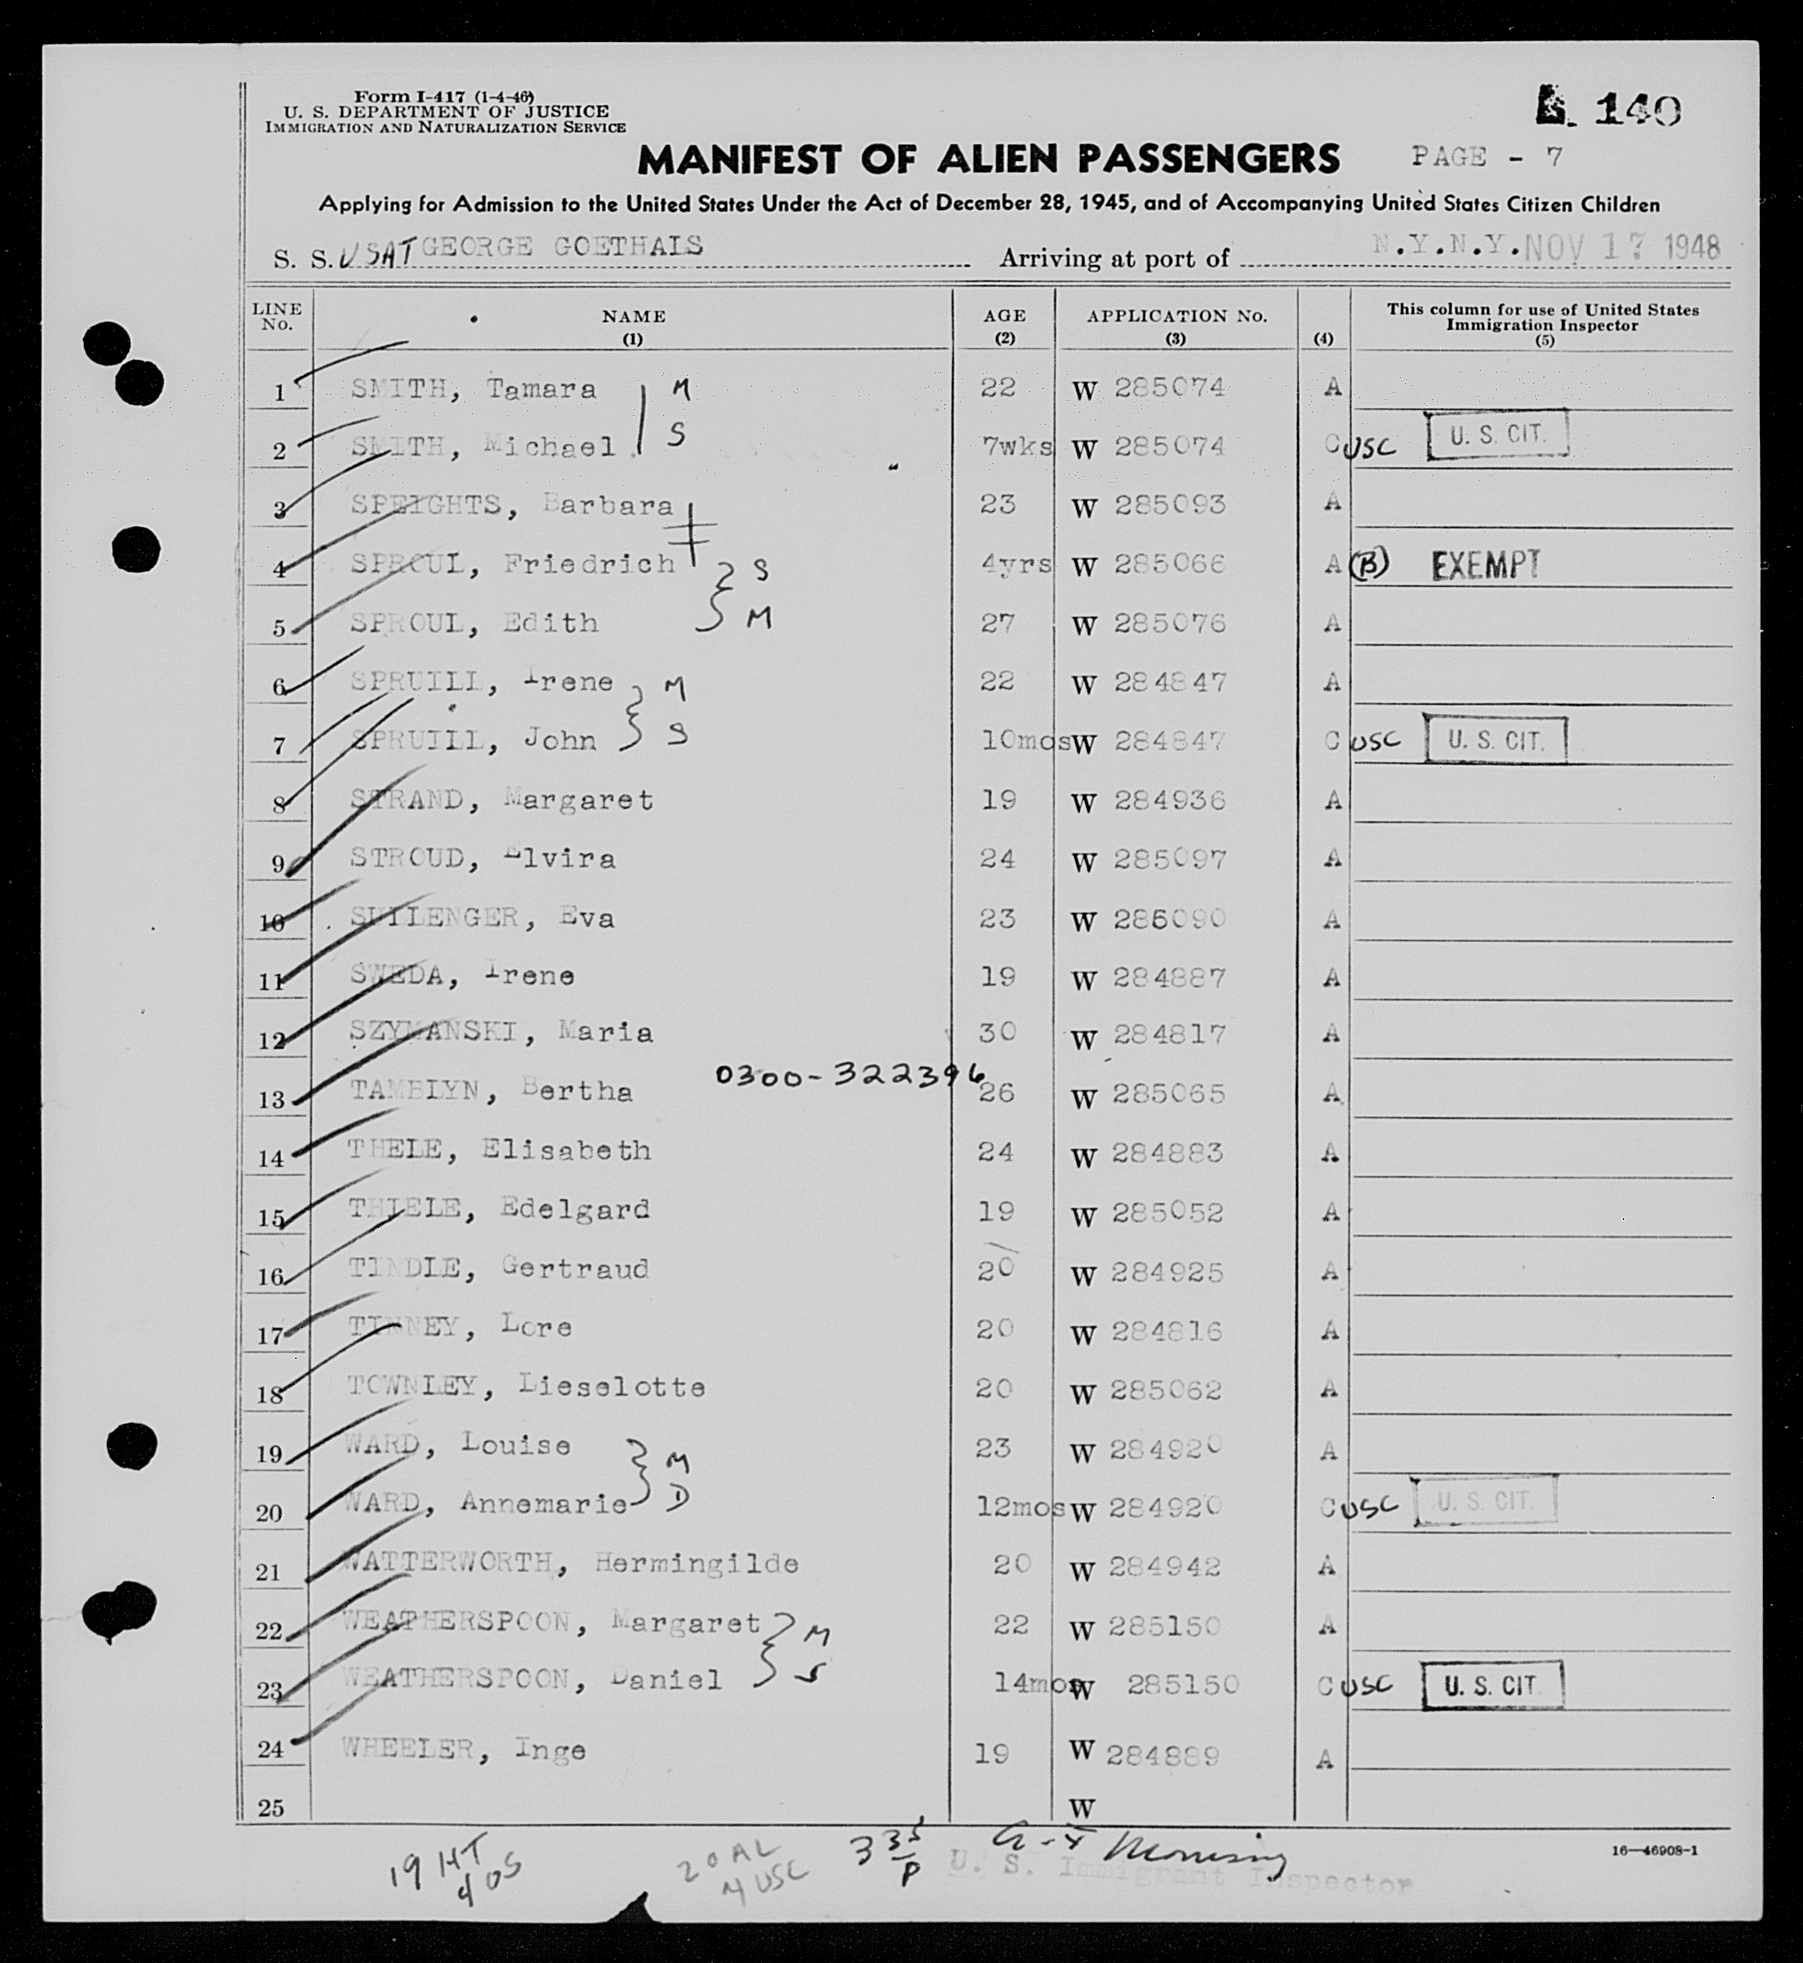 Form I-417 (1-4-46)
U. S. DEPARTMENT OF JUSTICE
IMMIGRATION AND NATURALIZATION SERVICE
140
MANIFEST OF ALIEN PASSENGERS PAGE - 7
Applying for Admission to the United States Under the Act of December 28, 1945, and of Accompanying United States Citizen Children
S. S. USAT GEORGE GOETHALS Arriving at port of N.Y.N.Y. NOV 17 1948
LINE No. NAME (1) AGE (2) APPLICATION No. (3) (4) This column for use of United States Immigration Inspector (5)
1 SMITH, Tamara M 22 W 285074 A
2 SMITH, Michael S 7wks W 285074 C USC U. S. CIT.
3 SPEIGHTS, Barbara 23 W 285093 A
4 SPROUL, Friedrich S 4yrs W 285066 A (B) EXEMPT
5 SPROUL, Edith M 27 W 285076 A
6 SPRUILL, Irene M 22 W 284847 A
7 SPRUILL, John S 10mos W 284847 C USC U. S. CIT.
8 STRAND, Margaret 19 W 284936 A
9 STROUD, Elvira 24 W 285097 A
10 SULLENGER, Eva 23 W 285090 A
11 SWEDA, Irene 19 W 284887 A
12 SZYMANSKI, Maria 30 W 284817 A
13 TAMBLYN, Bertha 0300-322396 26 W 285065 A
14 THELE, Elisabeth 24 W 284883 A
15 THIELE, Edelgard 19 W 285052 A
16 TINDLE, Gertraud 20 W 284925 A
17 TINNEY, Lore 20 W 284816 A
18 TOWNLEY, Lieselotte 20 W 285062 A
19 WARD, Louise M 23 W 284920 A
20 WARD, Annemarie D 12mos W 284920 C USC U. S. CIT.
21 WATTERWORTH, Hermingilde 20 W 284942 A
22 WEATHERSPOON, Margaret M 22 W 285150 A
23 WEATHERSPOON, Daniel S 14mos W 285150 C USC U. S. CIT
24 WHEELER, Inge 19 W 284889 A
25 W
16—46908-1
19 HT
4 US
20 AL
4 USC
U. S. Immigrant Inspector